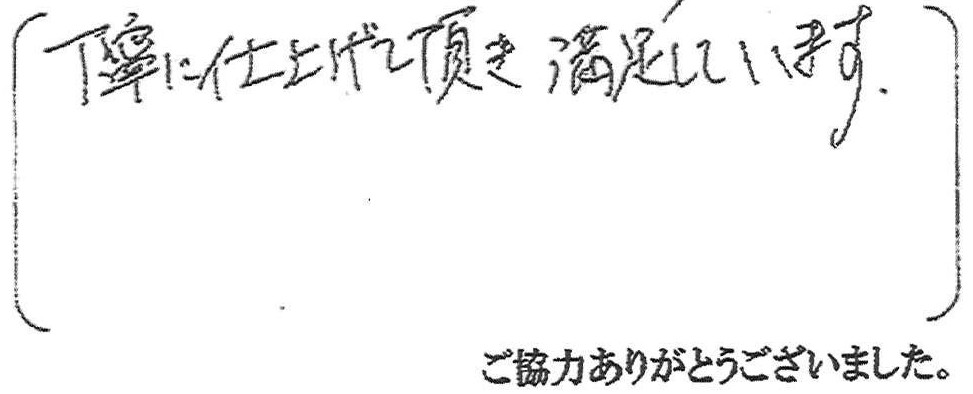 丁寧に仕上げて頂き満足しています.
ご協力ありがとうございました。